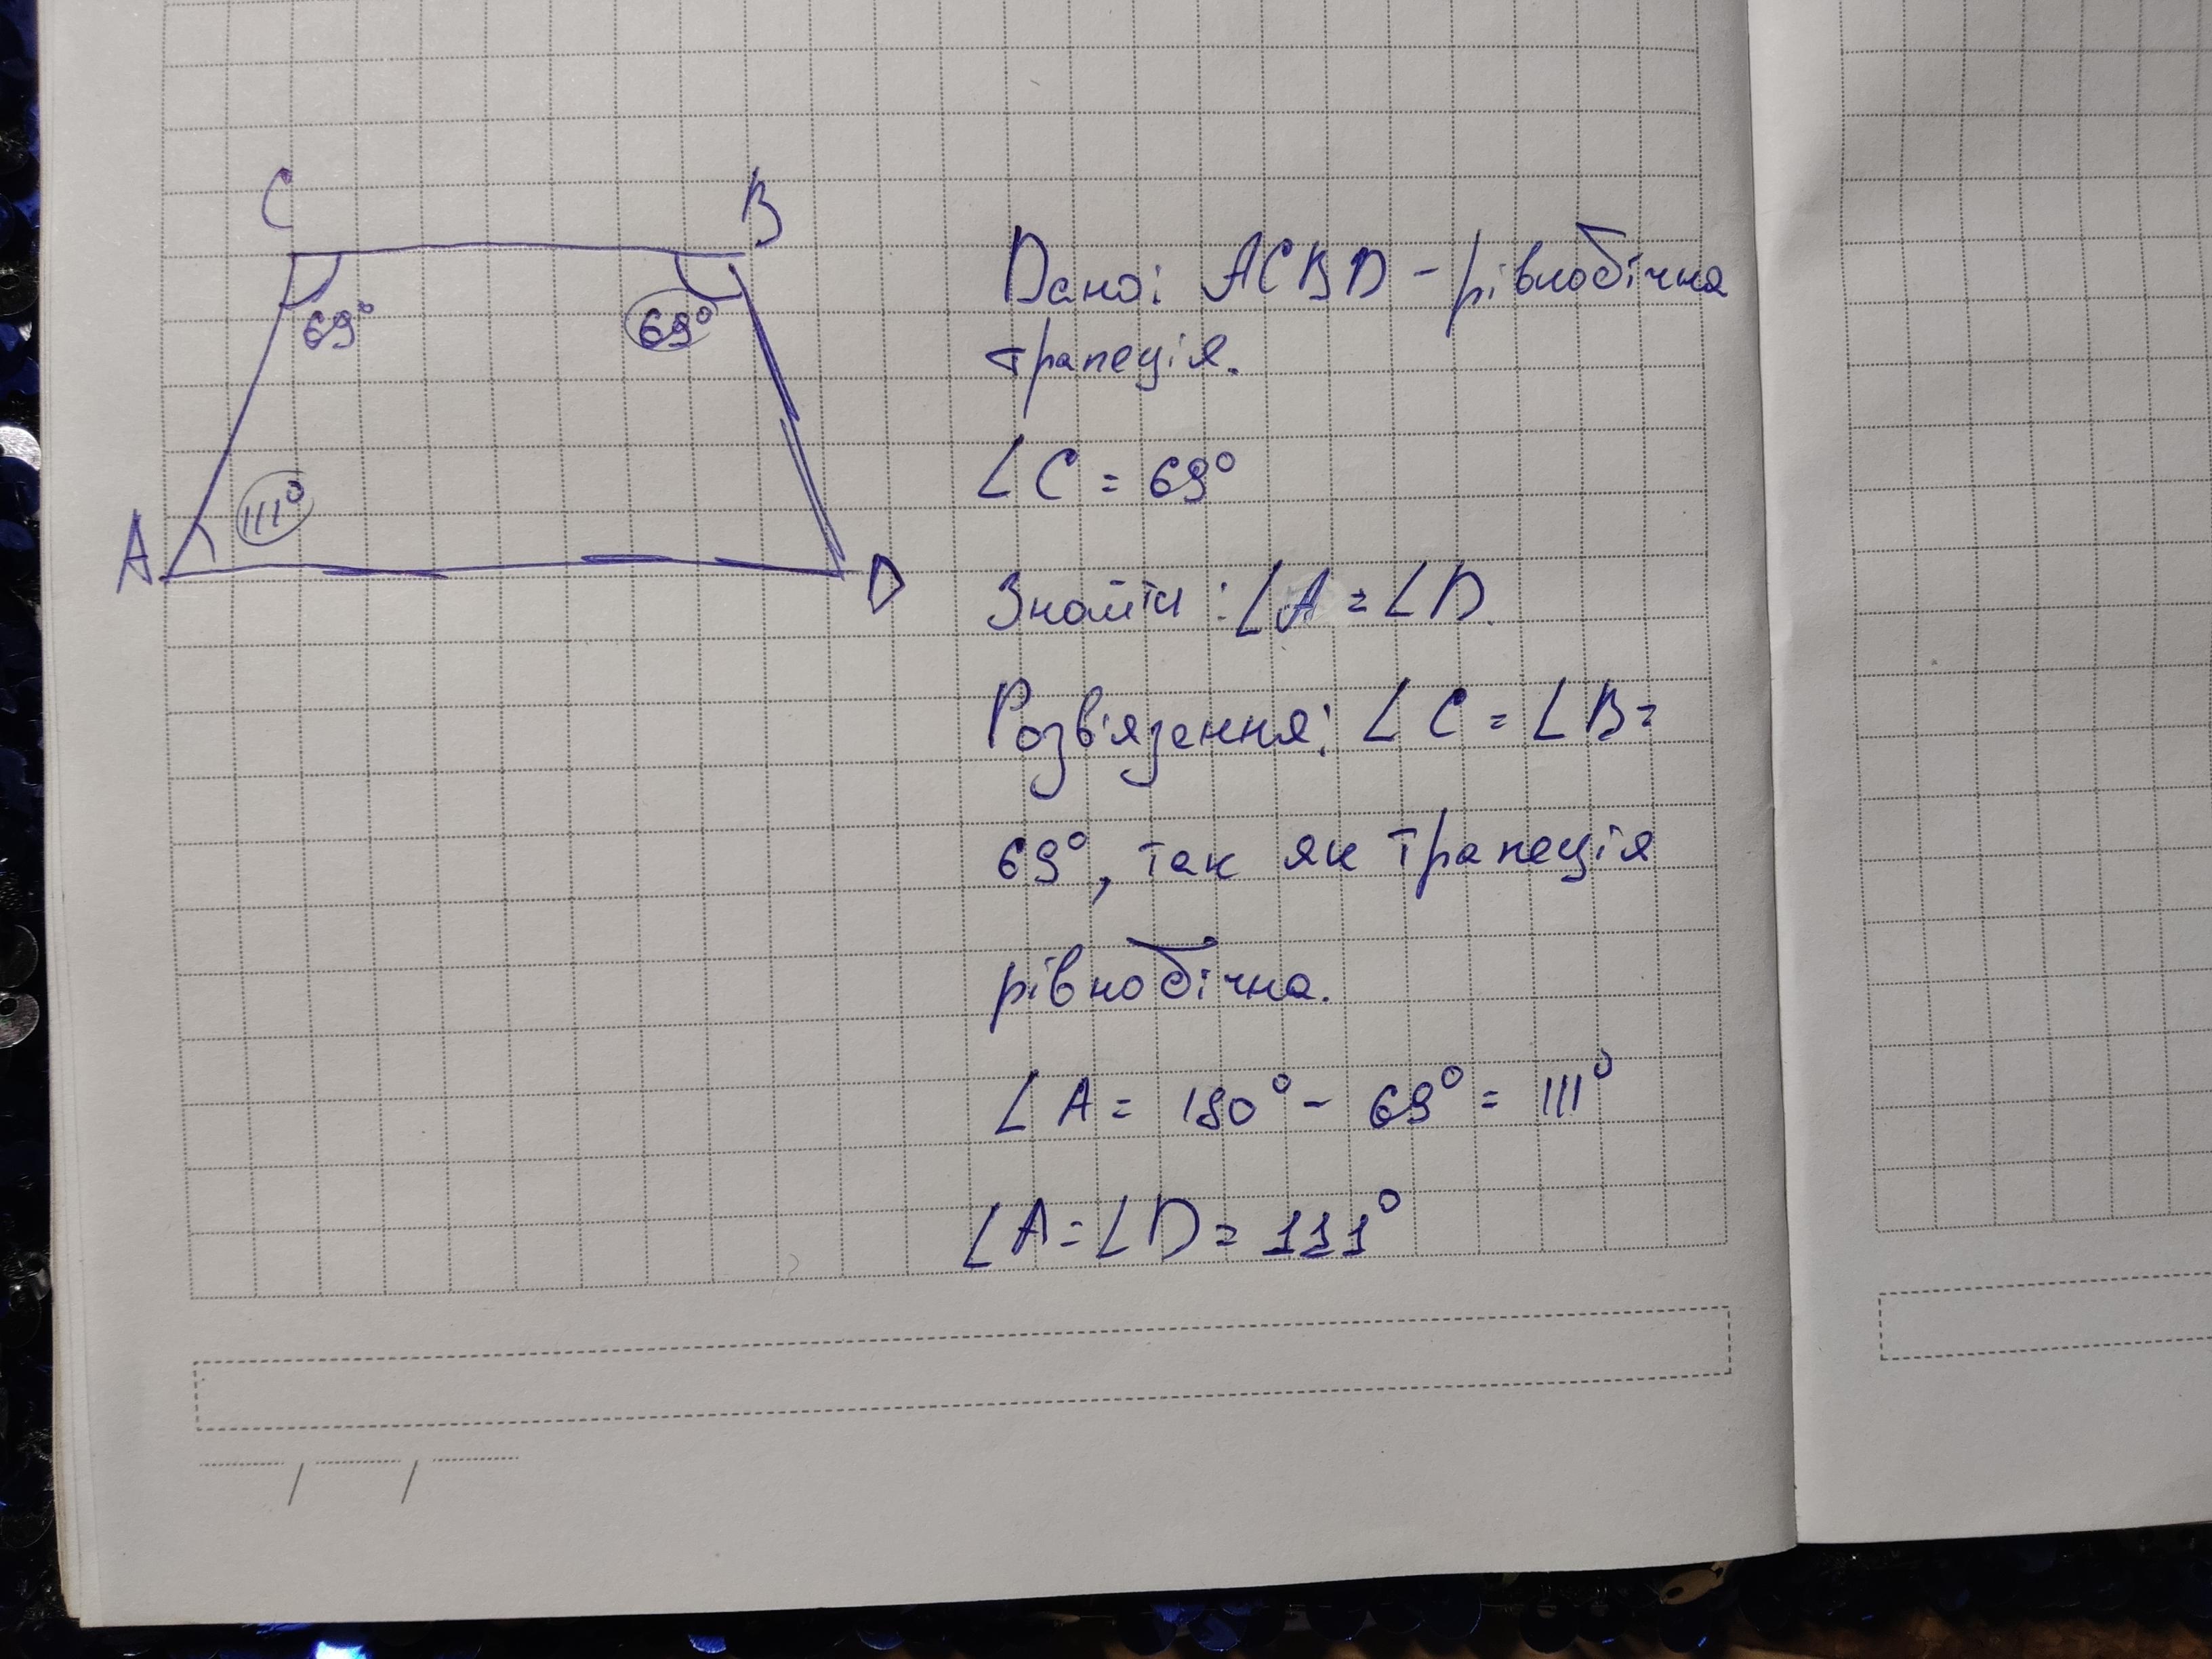 C
B
69°
69°
111°
A
D
Дано: ACBD - рівнобічна
трапеція.
∠C = 69°
Знайти: ∠A = ∠D.
Розв'язення: ∠C = ∠B =
69°, так як трапеція
рівнобічна.
∠A = 180° - 69° = 111°
∠A = ∠D = 111°